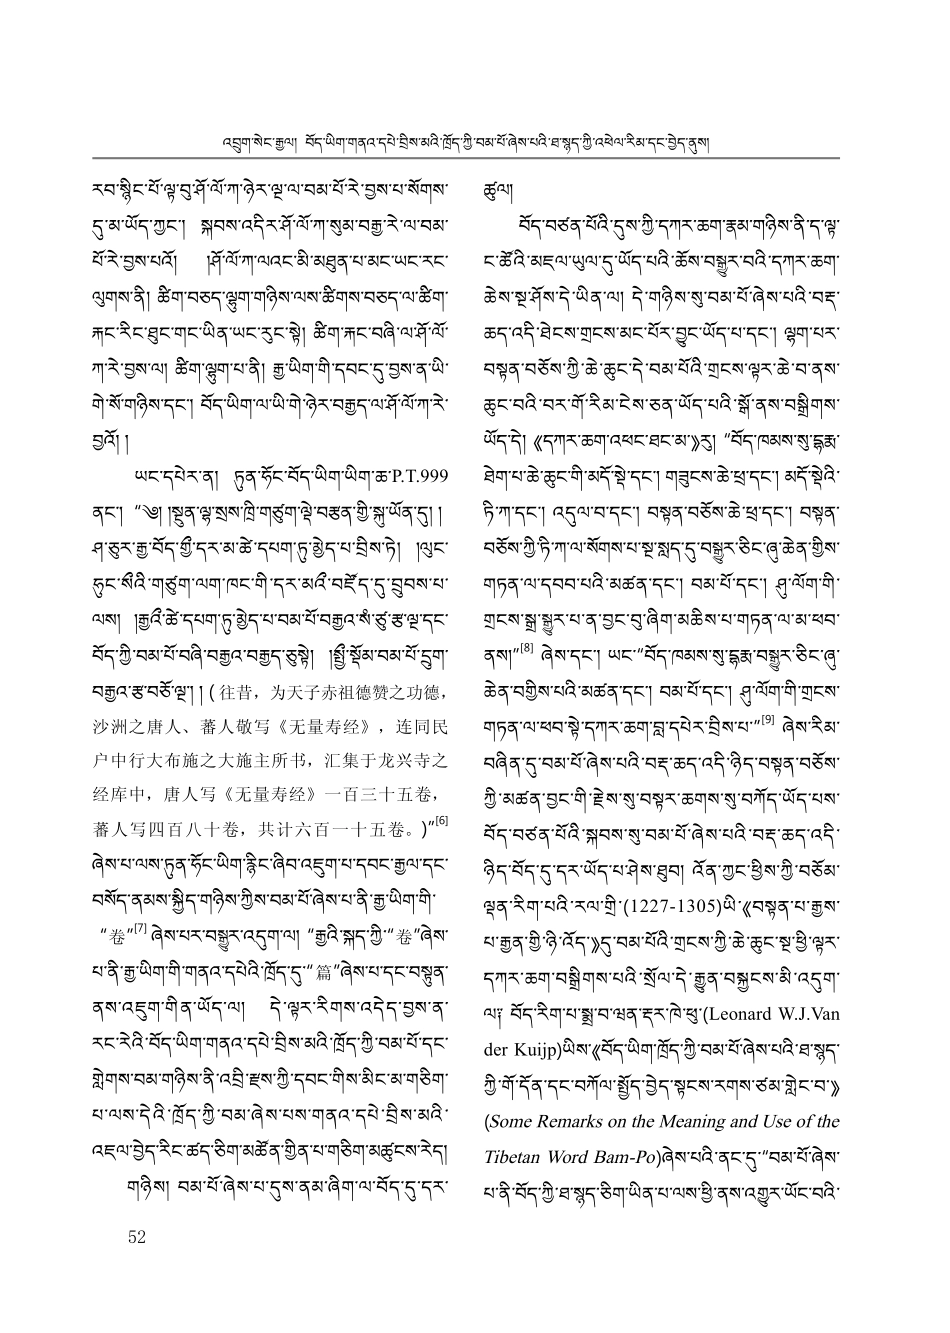 འབྲུག་སེང་རྒྱལ། བོད་ཡིག་གནའ་དཔེ་བྲིས་མའི་ཁྲོད་ཀྱི་བམ་པོ་ཞེས་པའི་ཐ་སྙད་ཀྱི་འཕེལ་རིམ་དང་བྱེད་ནུས།
རབ་སྙིང་པོ་ལྟ་བུ་ཤོ་ལོ་ཀ་ཉེར་ལྔ་ལ་བམ་པོ་རེ་བྱས་པ་སོགས་
དུ་མ་ཡོད་ཀྱང་། སྐབས་འདིར་ཤོ་ལོ་ཀ་སུམ་བརྒྱ་རེ་ལ་བམ་
པོ་རེ་བྱས་པའོ། །ཤོ་ལོ་ཀ་ལའང་མི་མཐུན་པ་མང་ཡང་རང་
ལུགས་ནི། ཚིག་བཅད་ལྷུག་གཉིས་ལས་ཚིགས་བཅད་ལ་ཚིག་
རྐང་རིང་ཐུང་གང་ཡིན་ཡང་རུང་སྟེ། ཚིག་རྐང་བཞི་ལ་ཤོ་ལོ་
ཀ་རེ་བྱས་ལ། ཚིག་ལྷུག་པ་ནི། རྒྱ་ཡིག་གི་དབང་དུ་བྱས་ན་ཡི་
གེ་སོ་གཉིས་དང་། བོད་ཡིག་ལ་ཡི་གེ་ཉེར་བརྒྱད་ལ་ཤོ་ལོ་ཀ་རེ་
བྱའོ། །
ཡང་དཔེར་ན། ཏུན་ཧོང་བོད་ཡིག་ཡིག་ཆ་P.T.999
ནང་། “༄། །སྔུན་ལྷ་སྲས་ཁྲི་གཙུག་ལྡེ་བརྩན་གྱི་སྐུ་ཡོན་དུ། །
ཤ་ཅུར་རྒྱ་བོད་གྱི་དར་མ་ཚེ་དཔག་ཏུ་མྱེད་པ་བྲིས་ཏེ། །ལུང་
ཧུང་སིའི་གཙུག་ལག་ཁང་གི་དར་མའི་བཛོད་དུ་བྲུབས་པ་
ལས། །རྒྱའི་ཚེ་དཔག་ཏུ་མྱེད་པ་བམ་པོ་བརྒྱའ་སཾ་ཙུ་རྩ་ལྔ་དང་
བོད་ཀྱི་བམ་པོ་བཞི་བརྒྱའ་བརྒྱད་ཅུསྟེ། །སྤྱི་སྡོམ་བམ་པོ་དྲུག་
བརྒྱའ་རྩ་བཅོ་ལྔ། ། (往昔，为天子赤祖德赞之功德，
沙洲之唐人、蕃人敬写《无量寿经》，连同民
户中行大布施之大施主所书，汇集于龙兴寺之
经库中，唐人写《无量寿经》一百三十五卷，
蕃人写四百八十卷，共计六百一十五卷。)”[6]
ཞེས་པ་ལས་ཏུན་ཧོང་ཡིག་རྙིང་ཞིབ་འཇུག་པ་དབང་རྒྱལ་དང་
བསོད་ནམས་སྐྱིད་གཉིས་ཀྱིས་བམ་པོ་ཞེས་པ་ནི་རྒྱ་ཡིག་གི་
“卷”[7] ཞེས་པར་བསྒྱུར་འདུག་ལ། “རྒྱའི་སྐད་ཀྱི་“卷”ཞེས་
པ་ནི་རྒྱ་ཡིག་གི་གནའ་དཔེའི་ཁྲོད་དུ་“篇”ཞེས་པ་དང་བསྟུན་
ནས་འཇུག་གིན་ཡོད་ལ། དེ་ལྟར་རིགས་འདེད་བྱས་ན་
རང་རེའི་བོད་ཡིག་གནའ་དཔེ་བྲིས་མའི་ཁྲོད་ཀྱི་བམ་པོ་དང་
གླེགས་བམ་གཉིས་ནི་འབྲི་རྫས་ཀྱི་དབང་གིས་མིང་མ་གཅིག་
པ་ལས་དེའི་ཁྲོད་ཀྱི་བམ་ཞེས་པས་གནའ་དཔེ་བྲིས་མའི་
འཇལ་བྱེད་རིང་ཚད་ཅིག་མཚོན་གྱིན་པ་གཅིག་མཚུངས་རེད།
གཉིས། བམ་པོ་ཞེས་པ་དུས་ནམ་ཞིག་ལ་བོད་དུ་དར་
ཚུལ།
བོད་བཙན་པོའི་དུས་ཀྱི་དཀར་ཆག་རྣམ་གཉིས་ནི་ད་ལྟ་
ང་ཚོའི་མཇལ་ཡུལ་དུ་ཡོད་པའི་ཆོས་བསྒྱུར་བའི་དཀར་ཆག་
ཆེས་སྔ་ཤོས་དེ་ཡིན་ལ། དེ་གཉིས་སུ་བམ་པོ་ཞེས་པའི་བརྡ་
ཆད་འདི་ཐེངས་གྲངས་མང་པོར་བྱུང་ཡོད་པ་དང་། ལྷག་པར་
བསྟན་བཅོས་ཀྱི་ཆེ་ཆུང་དེ་བམ་པོའི་གྲངས་ལྟར་ཆེ་བ་ནས་
ཆུང་བའི་བར་གོ་རིམ་ངེས་ཅན་ཡོད་པའི་སྒོ་ནས་བསྒྲིགས་
ཡོད་དེ། 《དཀར་ཆག་འཕང་ཐང་མ་》རུ། “བོད་ཁམས་སུ་དྷརྨ་
ཐེག་པ་ཆེ་ཆུང་གི་མདོ་སྡེ་དང་། གཟུངས་ཆེ་ཕྲ་དང་། མདོ་སྡེའི་
ཏི་ཀ་དང་། འདུལ་བ་དང་། བསྟན་བཅོས་ཆེ་ཕྲ་དང་། བསྟན་
བཅོས་ཀྱི་ཏི་ཀ་ལ་སོགས་པ་སྔ་སླད་དུ་བསྒྱུར་ཅིང་ཞུ་ཆེན་གྱིས་
གཏན་ལ་དབབ་པའི་མཚན་དང་། བམ་པོ་དང་། ཤུ་ལོག་གི་
གྲངས་སྒྲ་སྒྱུར་པ་ན་བྱང་བུ་ཞིག་མཆིས་པ་གཏན་ལ་མ་ཕབ་
ནས།”[8] ཞེས་དང་། ཡང་“བོད་ཁམས་སུ་དྷརྨ་བསྒྱུར་ཅིང་ཞུ་
ཆེན་བགྱིས་པའི་མཚན་དང་། བམ་པོ་དང་། ཤུ་ལོག་གི་གྲངས་
གཏན་ལ་ཕབ་སྟེ་དཀར་ཆག་བླ་དཔེར་བྲིས་པ་”[9] ཞེས་རིམ་
བཞིན་དུ་བམ་པོ་ཞེས་པའི་བརྡ་ཆད་འདི་ཉིད་བསྟན་བཅོས་
ཀྱི་མཚན་བྱང་གི་རྗེས་སུ་བསྟར་ཆགས་སུ་བཀོད་ཡོད་པས་
བོད་བཙན་པོའི་སྐབས་སུ་བམ་པོ་ཞེས་པའི་བརྡ་ཆད་འདི་
ཉིད་བོད་དུ་དར་ཡོད་པ་ཤེས་ཐུབ། འོན་ཀྱང་ཕྱིས་ཀྱི་བཅོམ་
ལྡན་རིག་པའི་རལ་གྲི་(1227-1305)ཡི་《བསྟན་པ་རྒྱས་
པ་རྒྱན་གྱི་ཉི་འོད་》དུ་བམ་པོའི་གྲངས་ཀྱི་ཆེ་ཆུང་སྔ་ཕྱི་ལྟར་
དཀར་ཆག་བསྒྲིགས་པའི་སྲོལ་དེ་རྒྱུན་བསྐྱངས་མི་འདུག་
ལ༑ བོད་རིག་པ་སྨྲ་བ་ཝན་རྡར་ཁེ་ཕུ་(Leonard W.J.Van
der Kuijp)ཡིས་《བོད་ཡིག་ཁྲོད་ཀྱི་བམ་པོ་ཞེས་པའི་ཐ་སྙད་
ཀྱི་གོ་དོན་དང་བཀོལ་སྤྱོད་བྱེད་སྟངས་རགས་ཙམ་གླེང་བ་》
(Some Remarks on the Meaning and Use of the
Tibetan Word Bam-Po)ཞེས་པའི་ནང་དུ་“བམ་པོ་ཞེས་
པ་ནི་བོད་ཀྱི་ཐ་སྙད་ཅིག་ཡིན་པ་ལས་ཕྱི་ནས་འགྱུར་ཡོང་བའི་
52